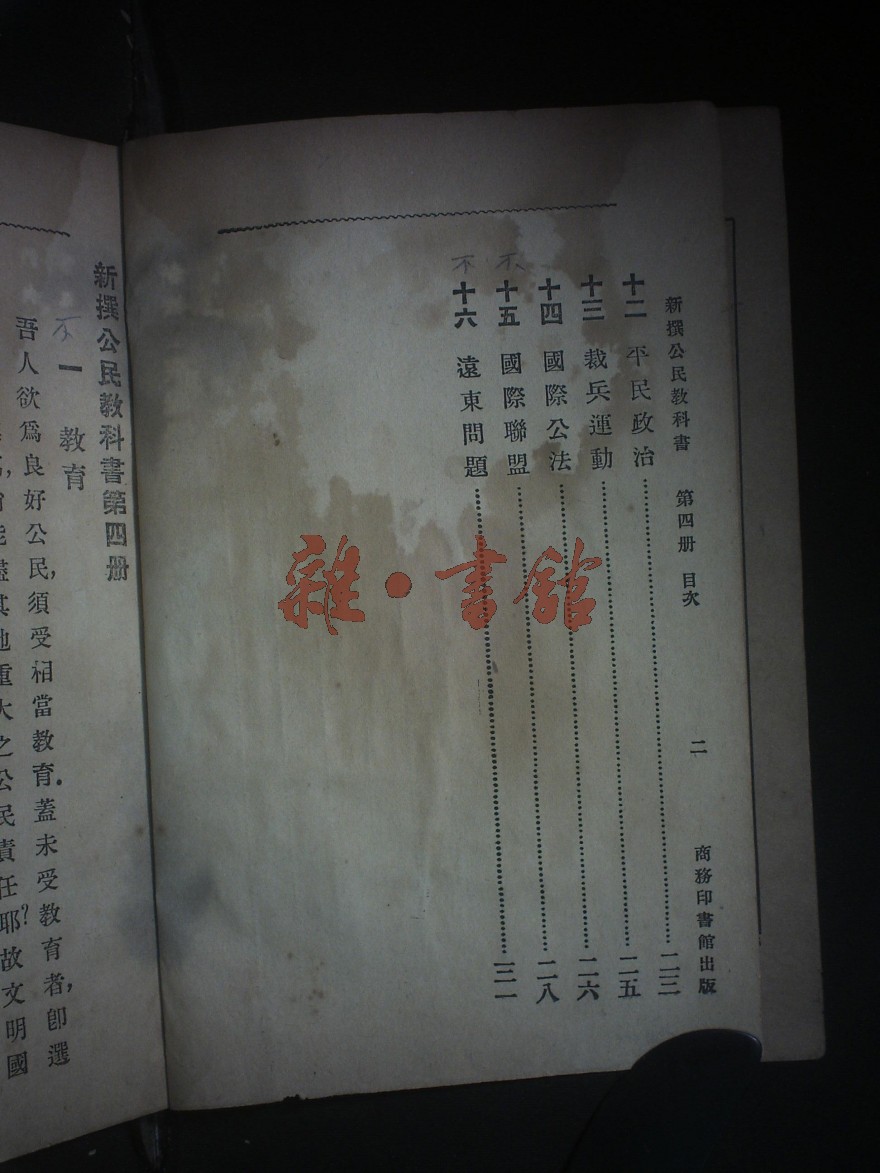 新撰公民教科書 第四册 目次 二 商務印書館出版
十二 平民政治 二三
十三 裁兵運動 二五
十四 國際公法 二六
不
十五 國際聯盟 二八
不
十六 遠東問題 三一
雜·書館
新撰公民教科書第四册
不
一 教育
吾人欲爲良好公民,須受相當教育.蓋未受教育者,卽選
盡其地重大之公民責任耶?故文明國